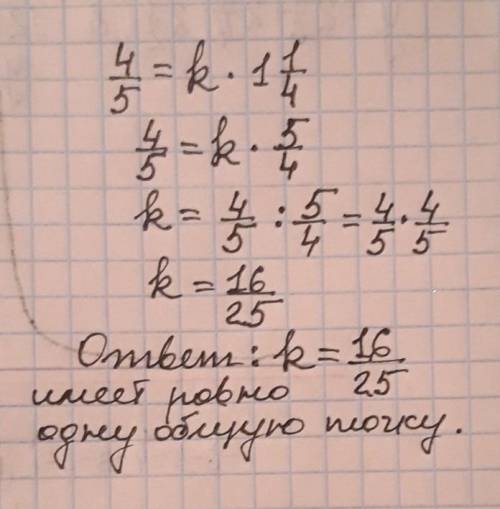 4/5 = k · 1 1/4
4/5 = k · 5/4
k = 4/5 : 5/4 = 4/5 · 4/5
k = 16/25
Ответ: k = 16/25
имеет ровно
одну общую точку.